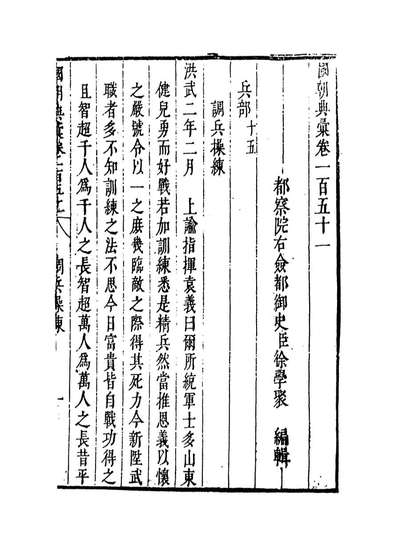 國朝典彙卷一百五十一
都察院右僉都御史臣徐學聚 編輯
兵部 十五
調兵操練
洪武二年二月 上諭指揮袁義曰爾所統軍士多山東
健兒勇而好戰若加訓練悉是精兵然當推恩義以懷
之嚴號令以一之庶幾臨敵之際得其死力今新陞武
職者多不知訓練之法不思今日富貴皆自戰功得之
且智超千人為千人之長智超萬人為萬人之長昔平
國朝典彙卷一百五十一 調兵操練 一